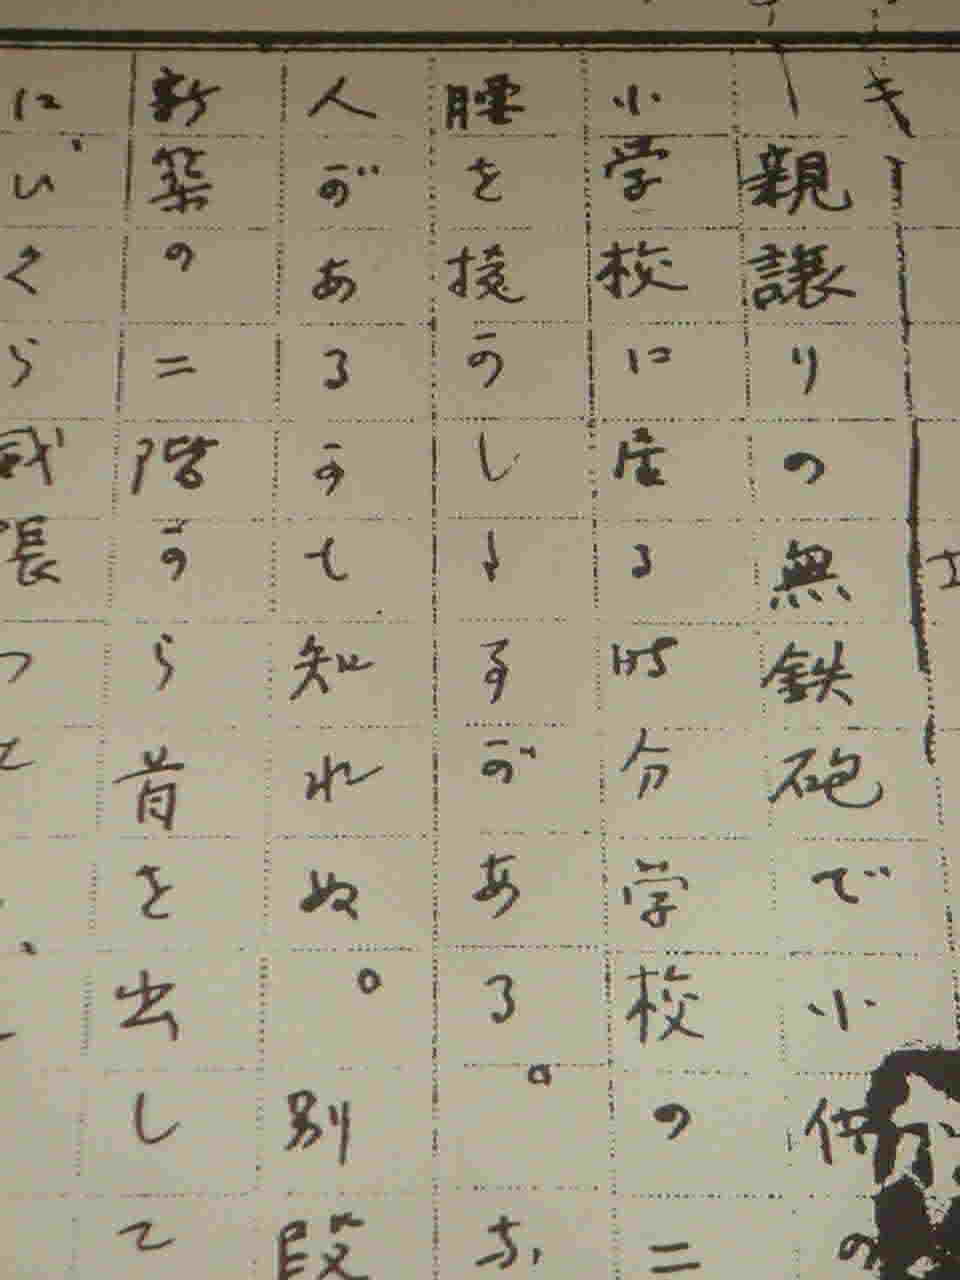 親譲りの無鉄砲で小供の
小学校に居る時分学校の二
腰を抜かした事がある。な
人があるかも知れぬ。別段
新築の二階から首を出して
に、いくら威張つて